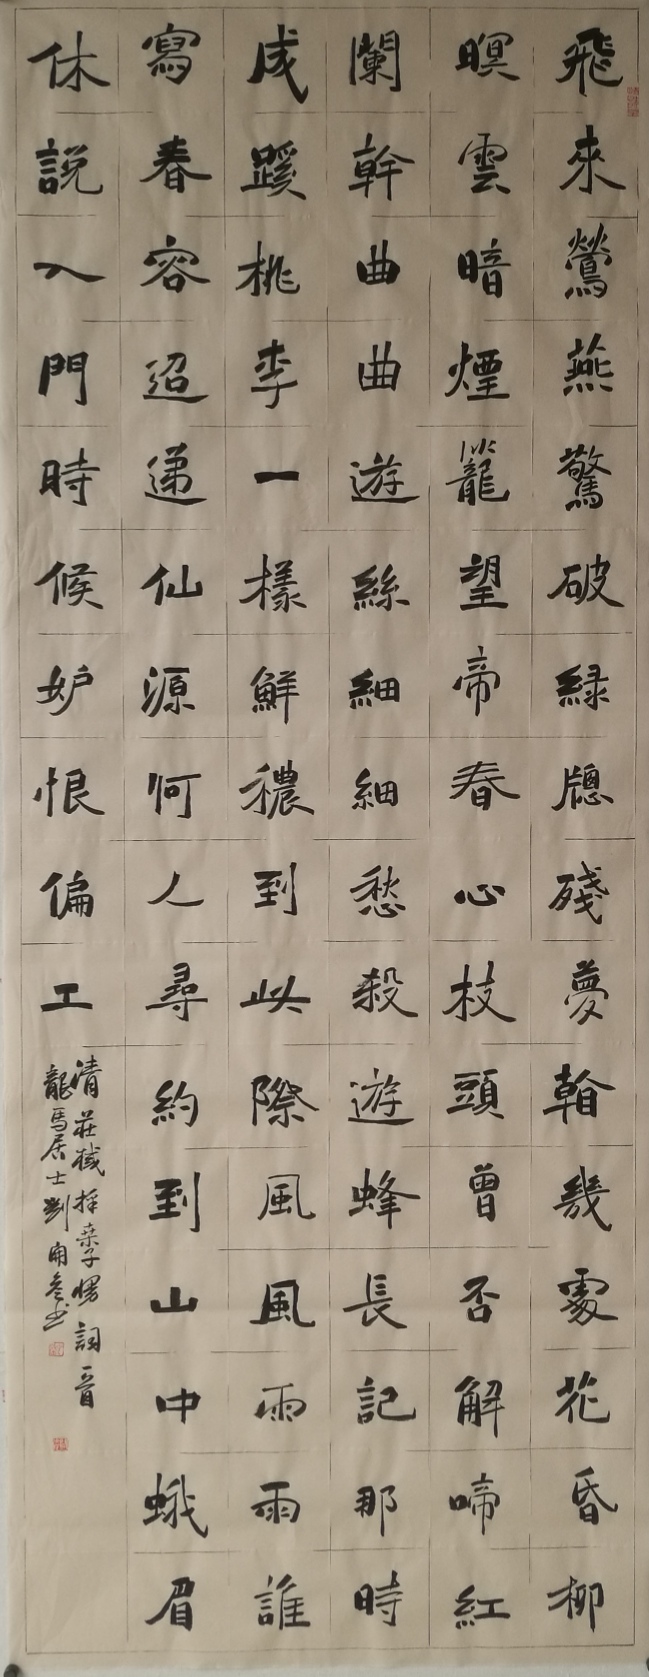 飛來鶯燕驚破綠牕殘夢朝幾處花昏柳
暝雲暗煙籠望帝春心枝頭曾否解啼紅
闌幹曲曲遊絲細細愁殺遊蜂長記那時
成蹊桃李一樣鮮穠到此際風風雨雨誰
寫春容迢遞仙源何人尋約到山中蛾眉
休說入門時候妒恨偏工
清莊棫採桑子慢詞一首
龍馬居士劉開書